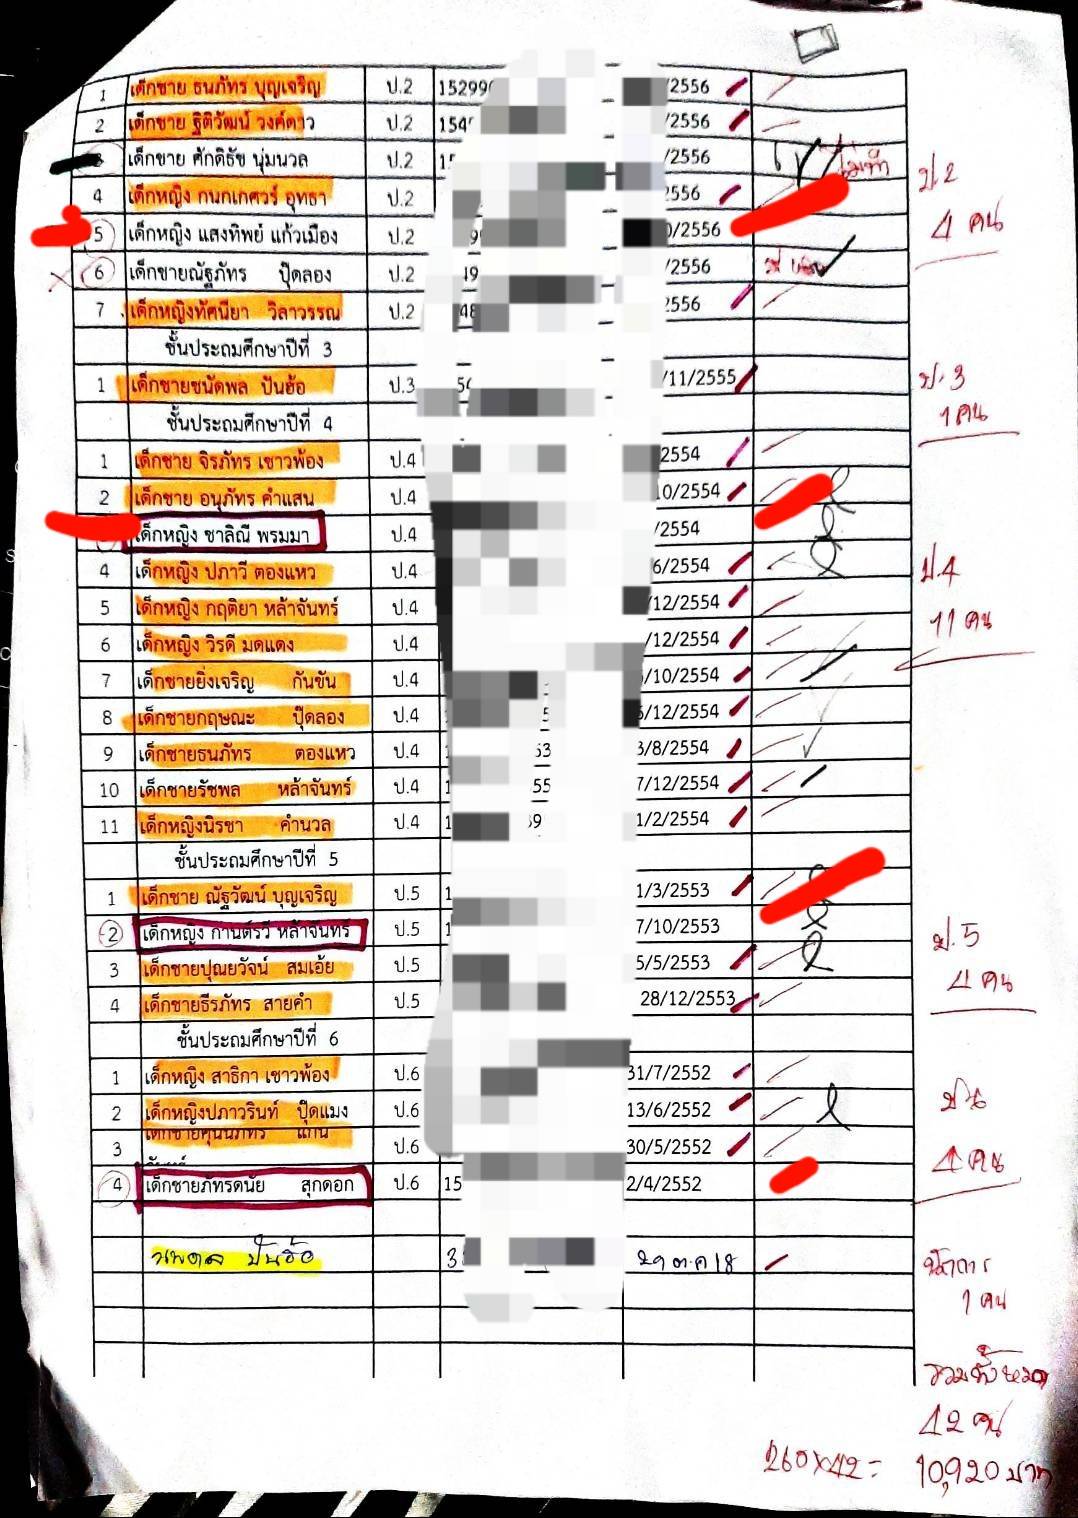 1 เด็กชาย ธนภัทร บุญเจริญ ป.2 15299 /2556
2 เด็กชาย ฐิติวัฒน์ วงค์ดาว ป.2 154 /2556
3 เด็กชาย ศักดิธัช นุ่มนวล ป.2 15 /2556
4 เด็กหญิง กนกเกศวร์ อุทธา ป.2 2556
5 เด็กหญิง แสงทิพย์ แก้วเมือง ป.2 /2556
6 เด็กชายณัฐภัทร ปุ๊ดลอง ป.2 49 /2556
7 เด็กหญิงทัศนียา วิลาวรรณ ป.2 48 2556
ป.2
4 คน
ชั้นประถมศึกษาปีที่ 3
1 เด็กชายชนัดพล ปันฮ้อ ป.3 /11/2555
ป.3
1 คน
ชั้นประถมศึกษาปีที่ 4
1 เด็กชาย จิรภัทร เชาวพ้อง ป.4 2554
2 เด็กชาย อนุภัทร คำแสน ป.4 10/2554
เด็กหญิง ชาลิณี พรมมา ป.4 /2554
4 เด็กหญิง ปภาวี ตองแหว ป.4 6/2554
5 เด็กหญิง กฤติยา หล้าจันทร์ ป.4 /12/2554
6 เด็กหญิง วิรดี มดแดง ป.4 /12/2554
7 เด็กชายยิ่งเจริญ กันขัน ป.4 /10/2554
8 เด็กชายกฤษณะ ปุ๊ดลอง ป.4 5 6/12/2554
9 เด็กชายธนภัทร ตองแหว ป.4 1 53 3/8/2554
10 เด็กชายรัชพล หล้าจันทร์ ป.4 1 55 7/12/2554
11 เด็กหญิงนิรชา คำนวล ป.4 1 39 1/2/2554
ป.4
11 คน
ชั้นประถมศึกษาปีที่ 5
1 เด็กชาย ณัฐวัฒน์ บุญเจริญ ป.5 1 1/3/2553
2 เด็กหญิง กานต์รวี หล้าจันทร์ ป.5 1 7/10/2553
3 เด็กชายปุณยวัจน์ สมเอ้ย ป.5 5/5/2553
4 เด็กชายธีรภัทร สายคำ ป.5 28/12/2553
ป.5
4 คน
ชั้นประถมศึกษาปีที่ 6
1 เด็กหญิง สาธิกา เชาวพ้อง ป.6 31/7/2552
2 เด็กหญิงปภาวรินท์ ปุ๊ดแมง ป.6 13/6/2552
3 ป.6 30/5/2552
4 เด็กชายภัทรดนัย สุกดอก ป.6 15 2/4/2552
4 คน
นพดล ปันฮ้อ 3 29 ต.ค 18
1 คน
รวมทั้งหมด
42 คน
260x42 = 10,920 บาท